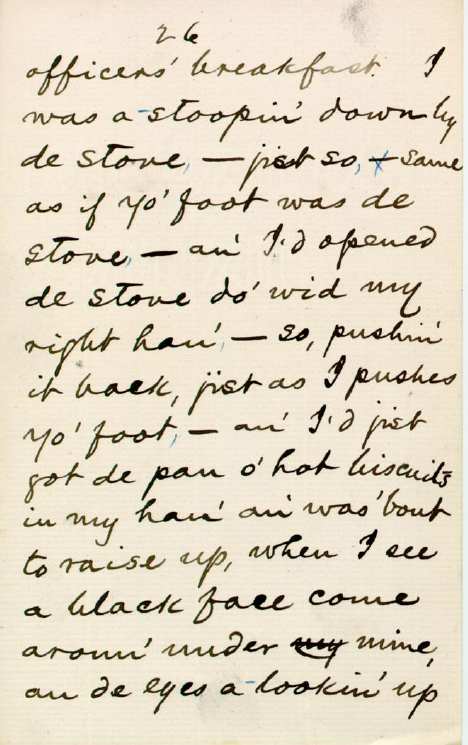 26
officers' breakfast. I
was a-stoopin' down by
de stove, — jist so, — same
as if yo' foot was de
stove, — an' I'd opened
de stove do' wid my
right han', — so, pushin'
it back, jist as I pushes
yo' foot, — an' I'd jist
got de pan o' hot biscuits
in my han' an' was 'bout
to raise up, when I see
a black face come
aroun' under my mine,
an de eyes a-lookin' up